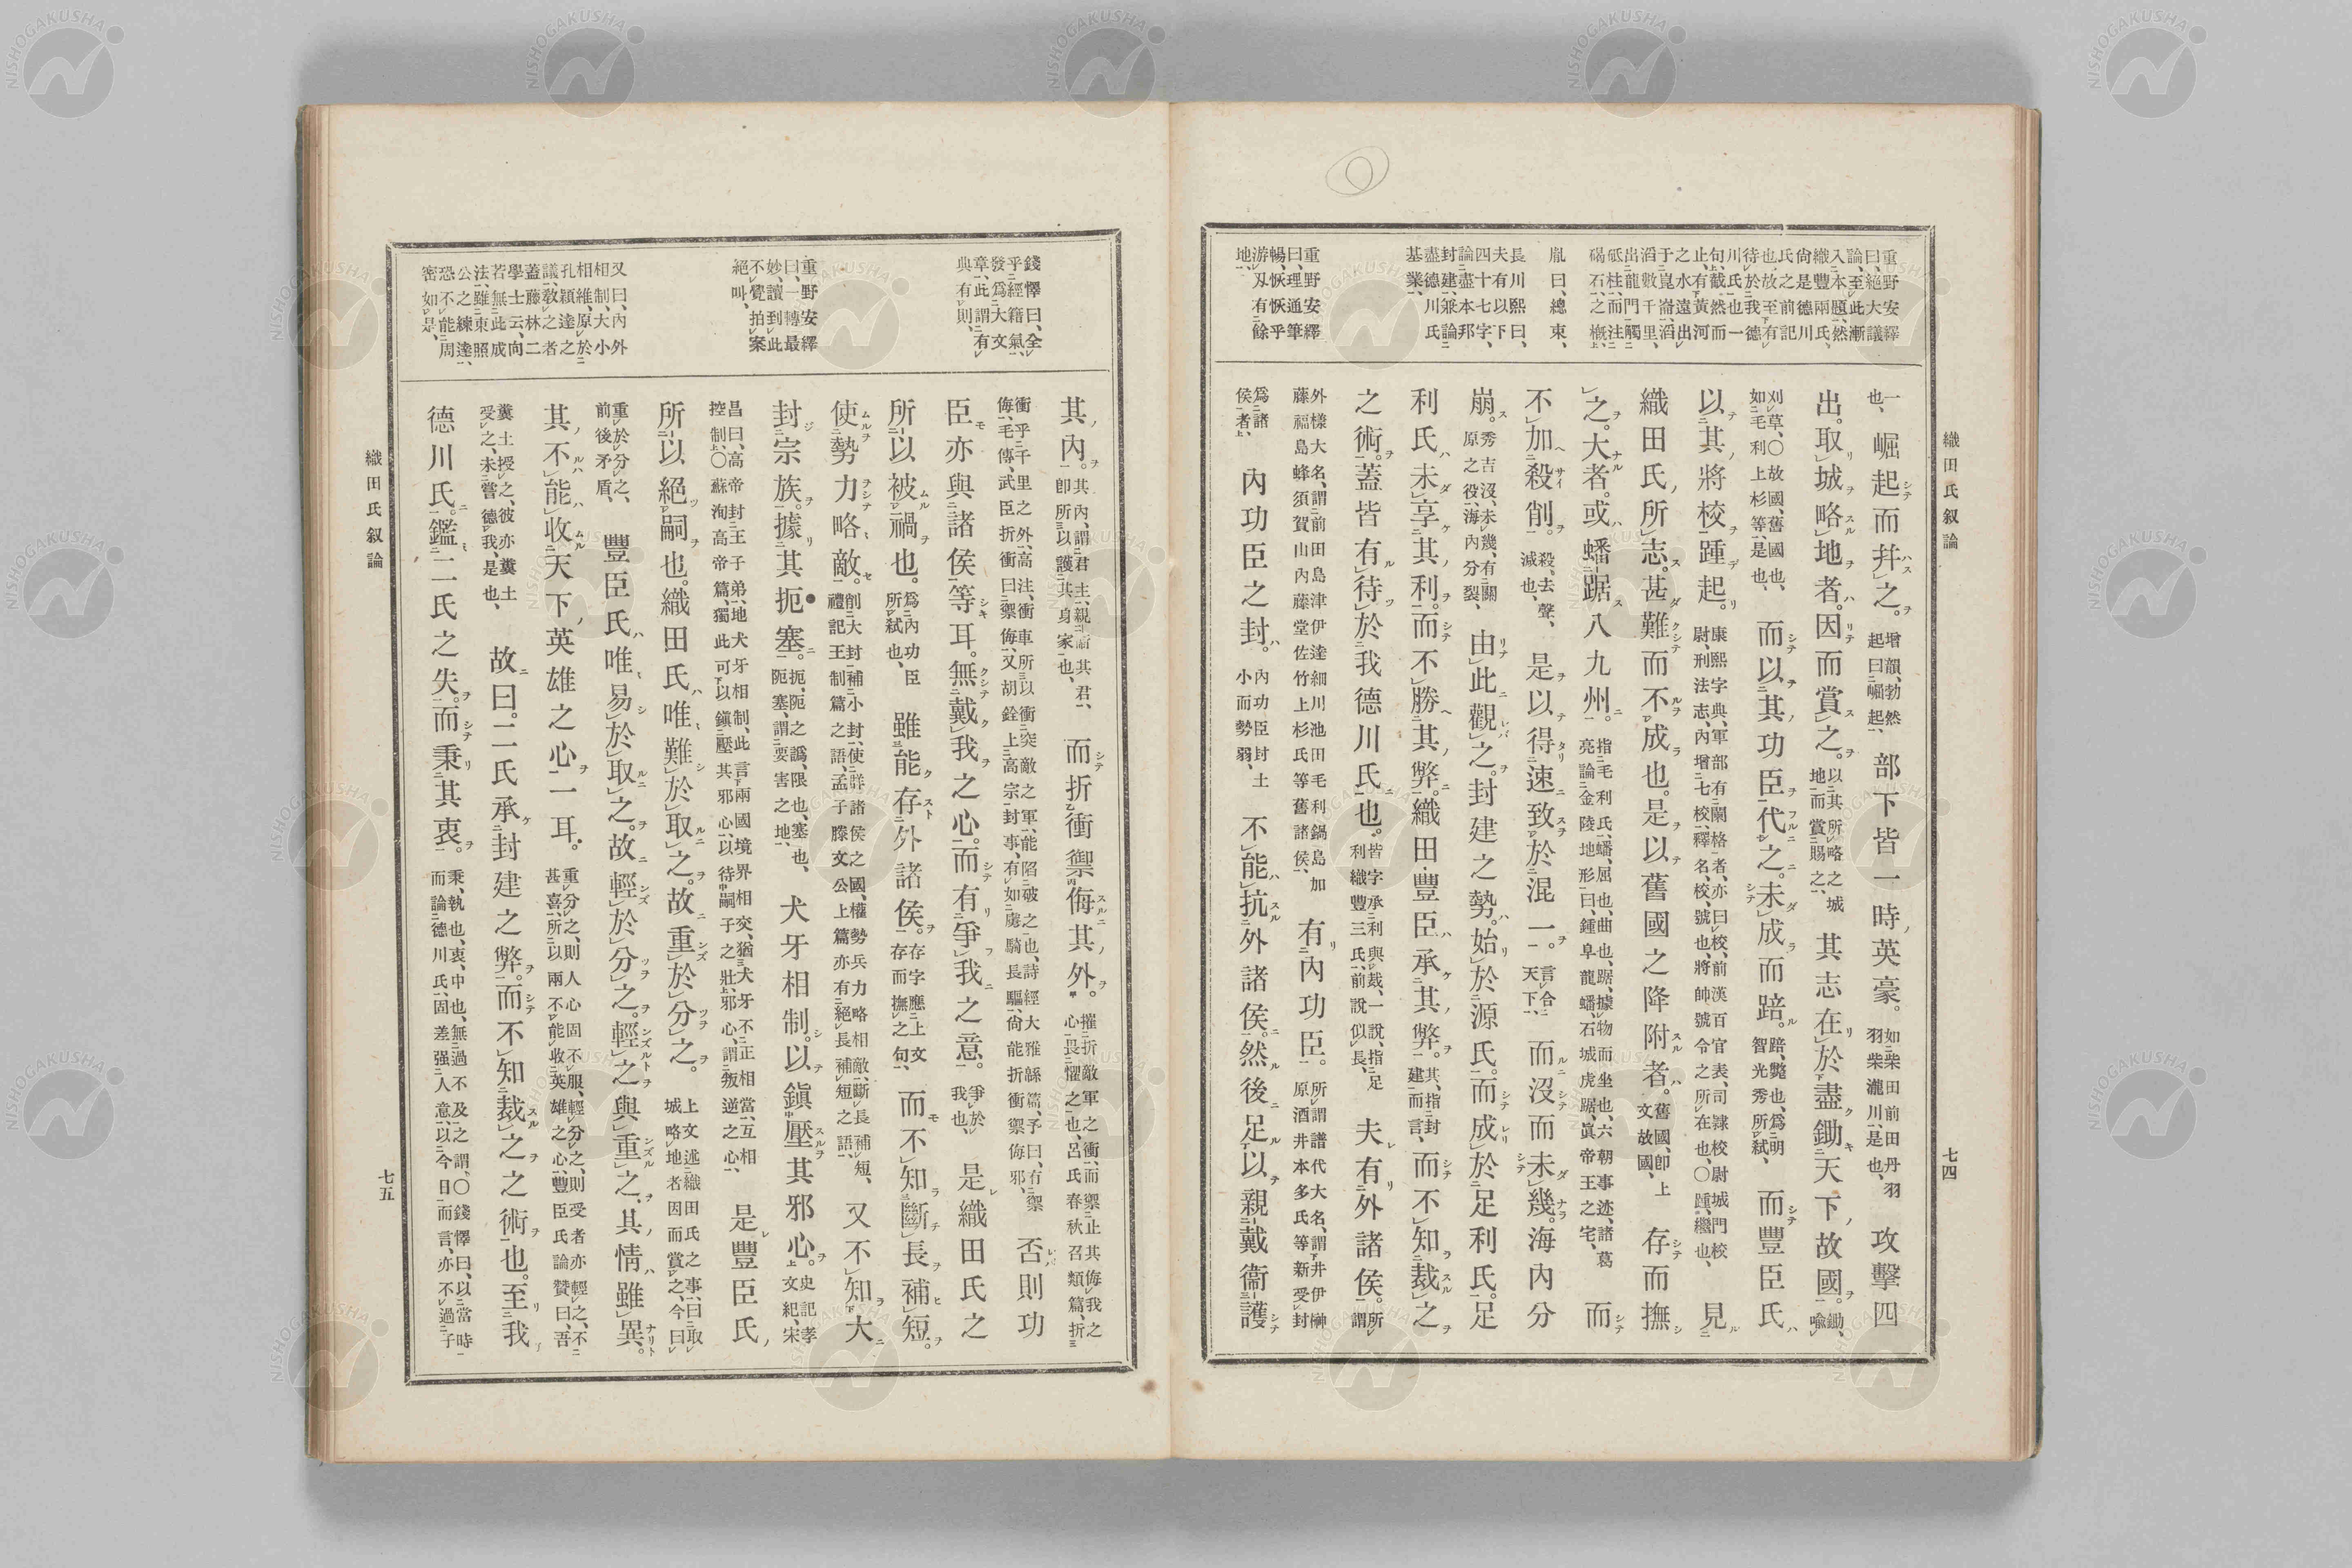 織田氏叙論
七四
重野安繹
曰、絕大議
論、至此漸
入本題、然
織豐兩氏、
尙是德川
氏之前記
也、故至有
待於我德
川氏也一
句、截然而
止、有黃河
之水遠出
于崑崙、滔
滔數千里、
出龍門觸
砥柱、而注
碣石之槪、
胤曰、總束、
長川熙曰、
夫有以下
四十七字、
論盡本邦
封建、兼論
盡德川氏
基業、
重野安繹
曰、理通筆
暢、恢恢乎
游刃有餘
地、
一也、崛起而幷之。增韻、勃然起曰崛起、部下皆一時英豪。如柴田前田丹羽羽柴瀧川、是也、攻擊四
出。取城略地者。因而賞之。以其所略之城地、而賞賜之、其志在於盡鋤天下故國。鋤、喩
刈草、〇故國、舊國也、如毛利上杉等、是也、而以其功臣代之。未成而踣。踣、斃也、爲明智光秀所弑、而豐臣氏
以其將校踵起。康熙字典、軍部有闌格者、亦曰校、前漢百官表、司隷校尉城門校尉、刑法志、內增七校、釋名、校、號也、將帥號令之所在也、〇踵、繼也、見
織田氏所志。甚難而不成也。是以舊國之降附者。舊國、卽上文故國、存而撫
之。大者。或蟠踞八九州。指毛利氏、蟠、屈也、曲也、踞、據物而坐也、六朝事迹、諸葛亮論金陵地形曰、鍾阜龍蟠、石城虎踞、眞帝王之宅、而
不加殺削。殺、去聲、減也、是以得速致於混一。言合天下、而沒而未幾。海內分
崩。秀吉沒、未幾、有關原之役、海內分裂、由此觀之。封建之勢。始於源氏。而成於足利氏。足
利氏未享其利。而不勝其弊。織田豐臣承其弊。其、指封建而言、而不知裁之
之術。蓋皆有待於我德川氏也。皆字承利與裁、一說、指足利織豐三氏、前說似長、夫有外諸侯。所謂
外樣大名、謂前田島津伊達細川池田毛利鍋島加藤福島蜂須賀山內藤堂佐竹上杉氏等舊諸侯、有內功臣。所謂譜代大名、謂井伊榊原酒井本多氏等新受封
爲諸侯者、內功臣之封。內功臣封土小而勢弱、不能抗外諸侯。然後足以親戴衞護
錢懌曰、全
乎經籍氣、
發爲大文
章、此謂有
典有則、
重野安繹
曰、一轉最
妙、讀到此
不覺拍案
絕叫、
又曰、內外
相制、大小
相維、原於
孔穎達之
議、敎之者
蓋藤林二
學士云、向
若無此成
法、雖東照
公之練達、
恐不能周
密如是、
其內。其內、謂君主、親諭其君、卽所以護其身家也、而折衝禦侮其外。摧折敵軍之衝、而禦止其侮、我之心畏懼之也、呂氏春秋召類篇、折
衝乎千里之外、高注、衝車所以衝突敵之軍、能陷破之也、詩經大雅緜篇、予曰、有禦侮、毛傳、武臣折衝曰禦侮、又胡銓上高宗封事、有如虜騎長驅、尙能折衝禦侮邪、否則功
臣亦與諸侯等耳。無戴我之心。而有爭我之意。爭於我也、是織田氏之
所以被禍也。爲內功臣所弑也、雖能存外諸侯。存字應上文存而撫之句、而不知斷長補短。
使勢力略敵。削大封、補小封、使群諸侯之國、權勢兵力略相敵、斷長補短、禮記王制篇之語、孟子滕文公上篇亦有絕長補短之語、又不知大
封宗族。據其扼塞。扼、阨之譌、限也、塞也、阨塞、謂要害之地、犬牙相制。以鎭壓其邪心。史記孝文紀、宋
昌曰、高帝封王子弟、地犬牙相制、此言兩國境界相交、猶犬牙不正相當、互相控制、〇蘇洵高帝篇、獨此可以鎭壓其邪心、以待嗣子之壯、邪心、謂叛逆之心、是豐臣氏
所以絕嗣也。織田氏唯難於取之。故重於分之。上文述織田氏之事、曰取城略地者因而賞之、今曰
重於分之、前後矛盾、豐臣氏唯易於取之。故輕於分之。輕之與重之。其情雖異。
其不能收天下英雄之心一耳。重分之、則人心固不服、輕分之、則受者亦輕之、不甚喜、所以兩不能收英雄之心、豐臣氏論贊曰、吾
糞土授之、彼亦糞土受之、未嘗德我、是也、故曰。二氏承封建之弊。而不知裁之之術也。至我
德川氏。鑑二氏之失。而秉其衷。秉、執也、衷、中也、無過不及之謂、〇錢懌曰、以當時而論德川氏、固差强人意、以今日而言、亦不過子
織田氏叙論
七五